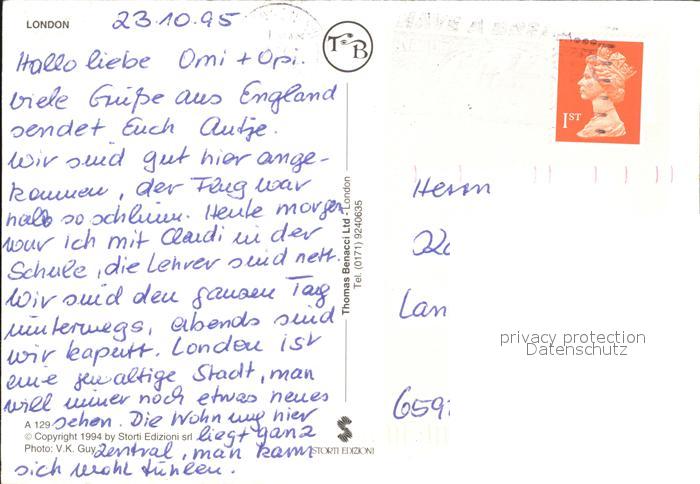 LONDON
23.10.95
Hallo liebe Omi + Opi.
viele Grüße aus England
sendet Euch Antje.
Wir sind gut hier ange-
kommen, der Flug war
halb so schlimm. Heute morgen
war ich mit Claudi in der
Schule, die Lehrer sind nett.
Wir sind den ganzen Tag
unterwegs, abends sind
wir kaputt. London ist
eine gewaltige Stadt, man
will immer noch etwas neues
sehen. Die Wohnung hier
liegt ganz
zentral, man kann
sich wohl fühlen.
A 129
© Copyright 1994 by Storti Edizioni srl
Photo: V.K. Guy
T B
Thomas Benacci Ltd - London
Tel. (0171) 9240635
STORTI EDIZIONI
1ST
Herrn
Lan
privacy protection
Datenschutz
659